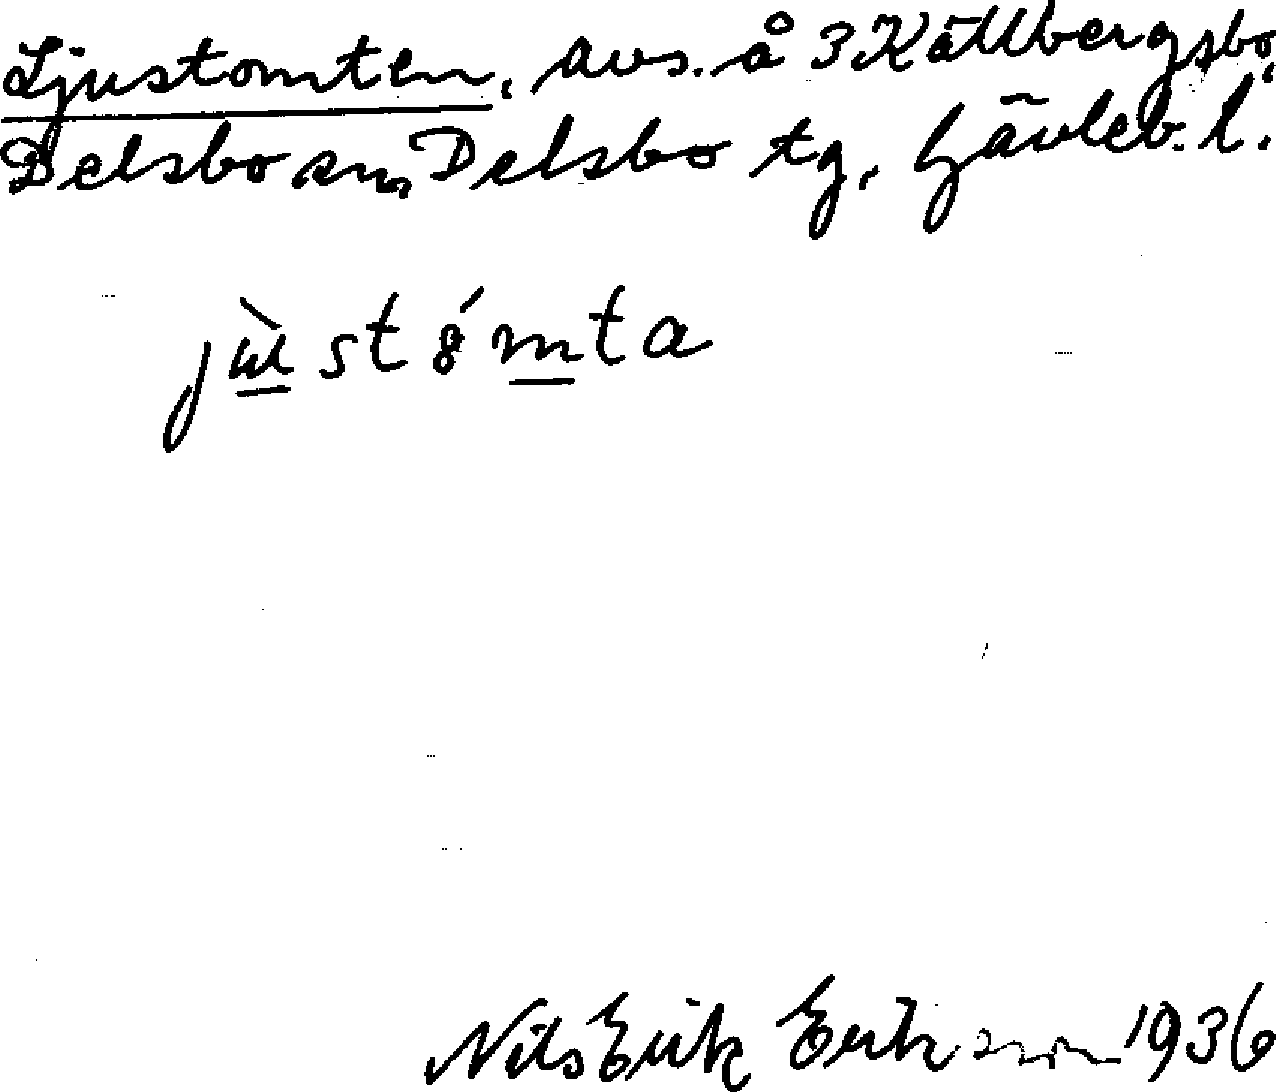 Ljustomten, avs. å 3 Källbergsbo,
Delsbo sn, Delsbo tg, Gävleb. l.
jùstómta
Nils Erik Eriksson 1936